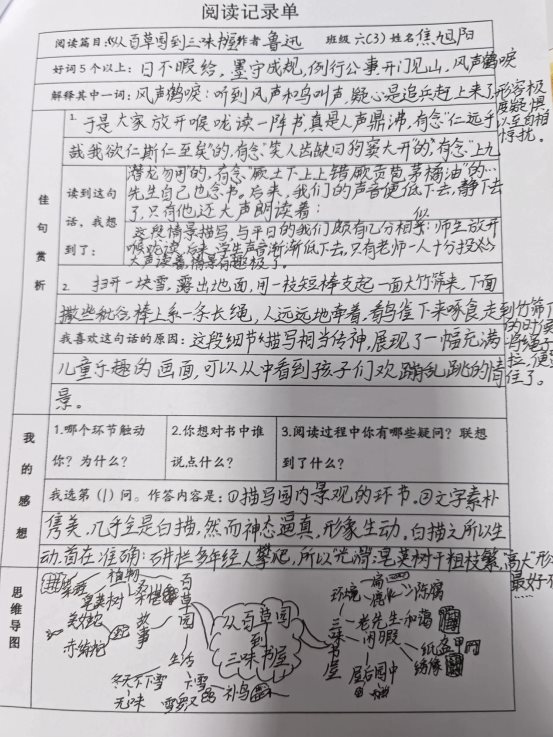 阅读记录单
阅读篇目:《从百草园到三味书屋》作者 鲁迅 班级 六(3) 姓名 焦旭阳
好词5个以上:日不暇给,墨守成规,例行公事,开门见山,风声鹤唳
解释其中一词:风声鹤唳:听到风声和鸟叫声,疑心是追兵赶上来了,形容极
度疑惧
以至自相
惊扰。
佳句赏析
1. 于是大家放开喉咙读一阵书,真是人声鼎沸,有念“仁远乎
哉我欲仁斯仁至矣”的,有念“笑人齿缺曰狗窦大开”的,有念“上九
潜龙勿用”的,有念“厥土下上上错厥贡苞茅橘油”的…
读到这句话,我想到了:
先生自己也念书。后来,我们的声音便低下去,静下去
了,只有他还大声朗读着:
这段情景描写,与平日的我们颇有几分相似:师生放开
喉咙读,后来,学生声音渐渐低下去,只有老师一人十分投入
大声读着,情景有趣极了。
2. 扫开一块雪,露出地面,用一枝短棒支起一面大竹筛来,下面
撒些秕谷,棒上系一条长绳,人远远地牵着,看鸟雀下来啄食,走到竹筛下
的时候
将绳子一
拉,便罩
住了。
我喜欢这句话的原因:这段细节描写相当传神,展现了一幅充满
儿童乐趣的画面,可以从中看到孩子们欢蹦乱跳的情
景。
我的感想
1.哪个环节触动你?为什么?
2.你想对书中谁说点什么?
3.阅读过程中你有哪些疑问?联想到了什么?
我选第(1)问。作答内容是:①描写园内景观的环节。②文字素朴
隽美,几乎全是白描,然而神态逼真,形象生动。白描之所以生
动,首在准确:石井栏多年经人攀爬,所以“光滑”;皂荚树干粗枝繁,“高大”形
最好不
思维导图
从百草园到三味书屋
百草园
植物
皂荚树
菜畦
桑椹
故事
美女蛇
赤练蛇
生活
冬天不下雪
无味
下雪
雪罗汉
补鸟
三味书屋
环境
陈腐
老先生
和蔼
闲暇
纸盔甲
绣像
屋后园中